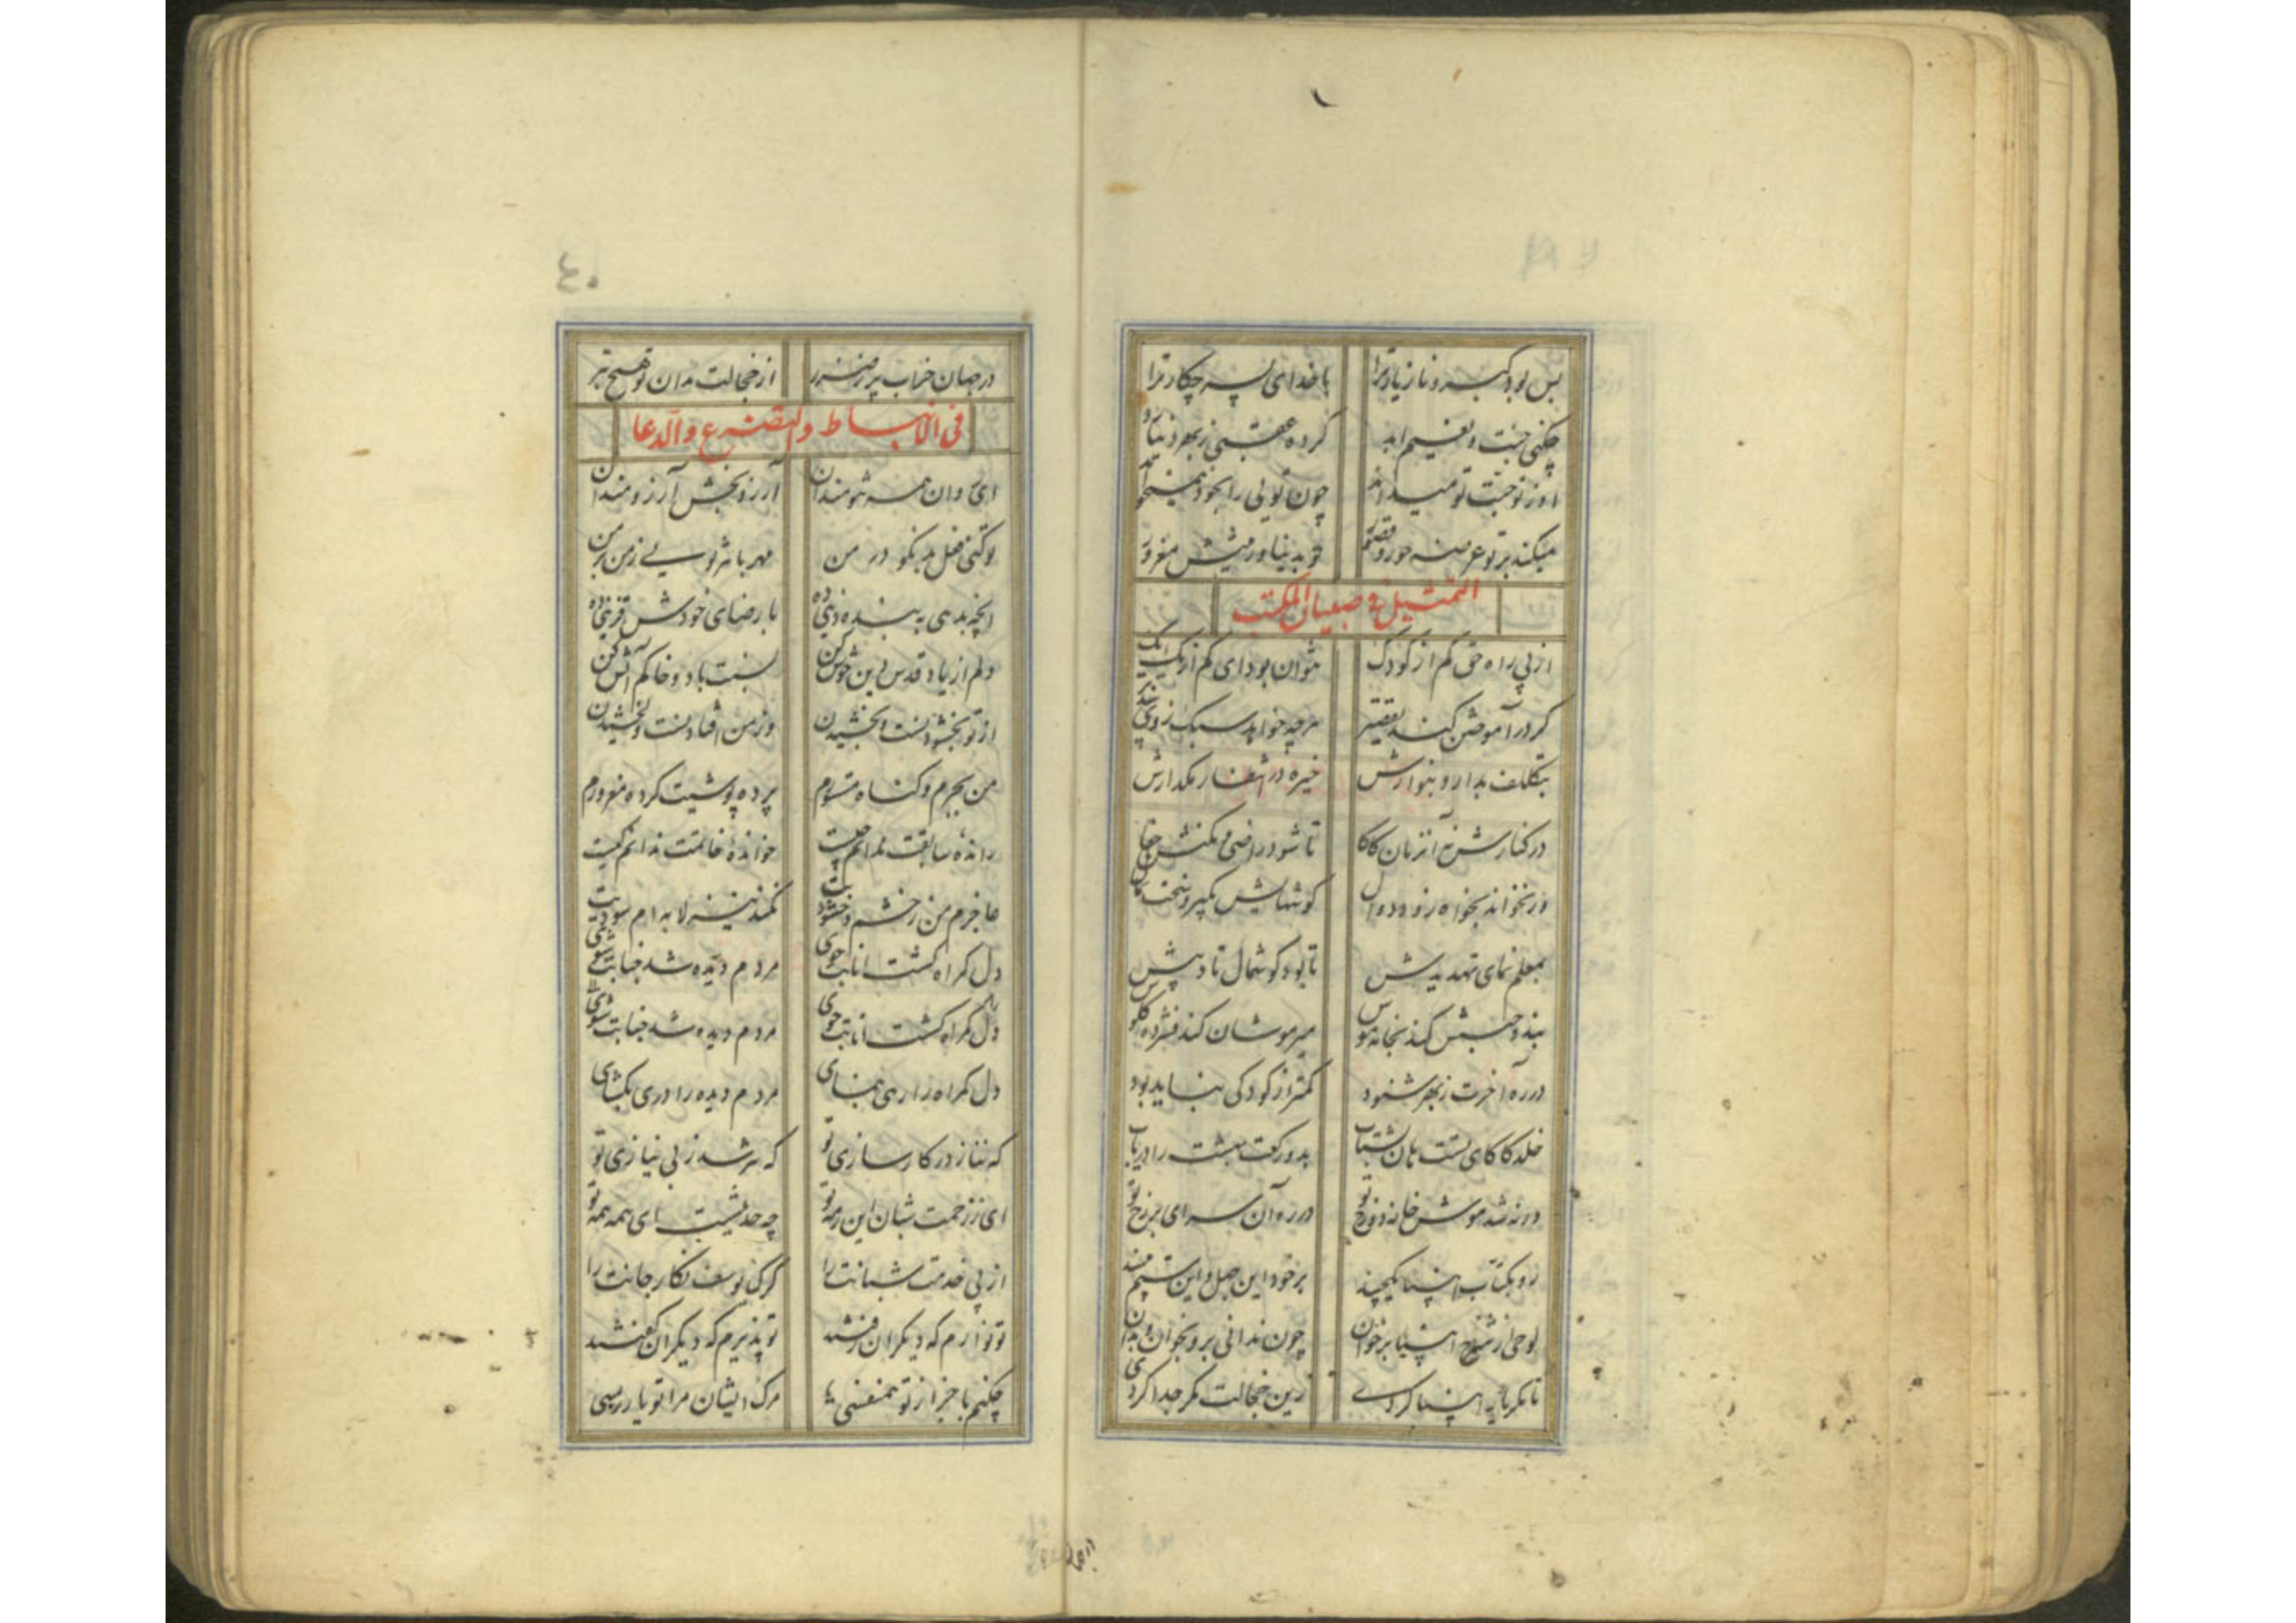 بس بود کبر و ناز یاد ترا با خدای ای پسر چکار ترا
چکنی جنت و نعیم ابد کرده عقبی ز بهر دنیا رد
او ز تو جنت تو میداند چون تویی را بخود همیخواند
میکند بر تو عرضه حور و قصور تو بدنیا و زینتش مغرور
التمثیل فی صبیان المکتب
از پی راه حق کم از کودک نتوان بود ای کم از یک یک
گر در آموختن کند تقصیر هرچه خواهد سبک ز وی بپذیر
بتلطف بدار و بنوازش خیره در انتظار مگدازش
در کنارش نه آنزمان کاکا تا شود راضی و مکنش جفا
ور نخواند بخواه زود دوال گوشهایش بگیر و سخت بمال
بمعلم نمای تهدیدش تا بود گوشمال تادیبش
بند و حبسش کند بخانه موش میر موشان کند فشرده گلوش
در ره آخرت ز بهر شنود کمتر از کودکی نباید بود
خلد کاکای تست هان بشتاب بدو رکعت بهشت را دریاب
ورنه شد موش خانه دوزخ تو در ره آن سرای برزخ تو
رو بکتاب انبیا یکچند بر خود این جهل و این ستم مپسند
لوحی از شرح انبیا برخوان چون ندانی برو بخوان و بدان
تا مگر یار انبیا گردی زین خجالت مگر جدا گردی
در جهان خراب پر ز ضرر از خجالت مدان تو هیچ بتر
فی الانبساط والتضرع والدعا
ای روان همه تنومندان آرزو بخش آرزومندان
تو کنی فعل بد نکو در من مهربانتر تویی ز من بر من
آنچه بدهی به بنده دینی ده با رضای خودش قرینی ده
دلم از یاد قدس دین خوش کن نسبت باد و خاکم آتش کن
از تو بخشودنست و بخشیدن وز من افتادنست و لخشیدن
من بجرم و گناه مقسوم پرده پوشیت کرده مغرورم
رانده سابقت ندانم چیست خوانده خاتمت ندانم کیست
عاجزم من ز خشم و خشنودیت نکند نیز لابه‌ام سودیت
دل گمراه گشت انابت جوی مردم دیده شد جنابت شوی
دل گمراه گشت انابت جوی مردم دیده شد جنابت شوی
دل گمراه را رهی بنمای مردم دیده را دری بگشای
که ننازد ز کارسازی تو که نترسد ز بی نیازی تو
ای ز رحمت شبان این رمه تو چه حدیثست ای همه همه تو
از پی خدمت شبانت را گرگ یوسف نگار جانت را
تو نوازم که دیگران زفتند تو پذیرم که دیگران گفتند
چکنم با جز از تو همنفسی مرگ ایشان مرا تو یار بسی